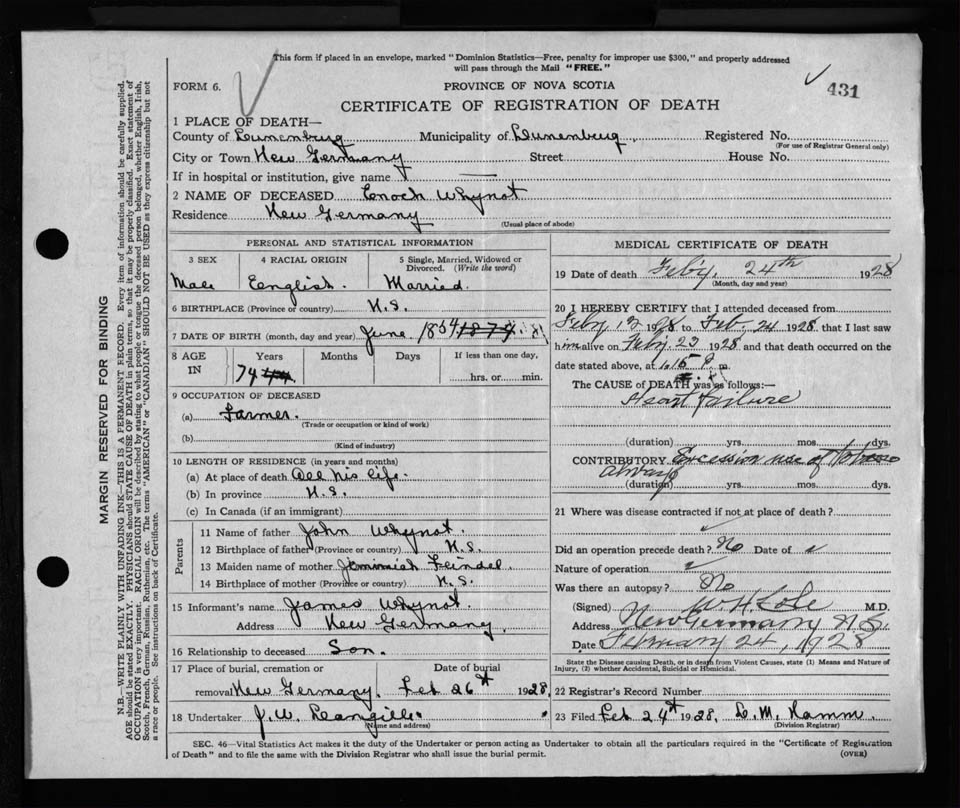 This form if placed in an envelope, marked "Dominion Statistics—Free, penalty for improper use $300," and properly addressed
will pass through the Mail "FREE."
FORM 6.
PROVINCE OF NOVA SCOTIA
431
CERTIFICATE OF REGISTRATION OF DEATH
1 PLACE OF DEATH—
County of Lunenburg Municipality of Lunenburg Registered No.
(For use of Registrar General only)
City or Town New Germany Street House No.
If in hospital or institution, give name —
2 NAME OF DECEASED Enoch Whynot
Residence New Germany
(Usual place of abode)
PERSONAL AND STATISTICAL INFORMATION
3 SEX 4 RACIAL ORIGIN 5 Single, Married, Widowed or
Divorced. (Write the word)
Male English. Married.
6 BIRTHPLACE (Province or country) N.S.
7 DATE OF BIRTH (month, day and year) June 1854
8 AGE Years Months Days If less than one day,
IN 74 hrs. or min.
9 OCCUPATION OF DECEASED
(a) Farmer.
(Trade or occupation or kind of work)
(b)
(Kind of industry)
10 LENGTH OF RESIDENCE (in years and months)
(a) At place of death All his life.
(b) In province N.S.
(c) In Canada (if an immigrant)
Parents
11 Name of father John Whynot.
12 Birthplace of father (Province or country) N.S.
13 Maiden name of mother Jemimiah Feindel.
14 Birthplace of mother (Province or country) N.S.
15 Informant's name James Whynot.
Address New Germany.
16 Relationship to deceased Son.
17 Place of burial, cremation or Date of burial
removal New Germany. Feb 26th 1928
18 Undertaker J. W.
(Name and address)
MEDICAL CERTIFICATE OF DEATH
19 Date of death Feb'y. 24th 1928
(Month, day and year)
20 I HEREBY CERTIFY that I attended deceased from
Feby 13 1928 to Feb. 24 1928 that I last saw
him alive on Feby 23 1928 and that death occurred on the
date stated above, at 1.15 P. m.
The CAUSE of DEATH was as follows:—
Heart failure
(duration) yrs. mos. dys.
CONTRIBUTORY Excession use of tobacco
always
(duration) yrs. mos. dys.
21 Where was disease contracted if not at place of death?
Did an operation precede death? No Date of
Nature of operation
Was there an autopsy? No
(Signed) W. H. Cole M.D.
Address New Germany N.S.
Date February 24, 1928
State the Disease causing Death, or in death from Violent Causes, state (1) Means and Nature of
Injury, (2) whether Accidental, Suicidal or Homicidal.
22 Registrar's Record Number
23 Filed Feb 24th 1928. L. M. Hamm.
(Division Registrar)
SEC. 46—Vital Statistics Act makes it the duty of the Undertaker or person acting as Undertaker to obtain all the particulars required in the "Certificate of Registration
of Death" and to file the same with the Division Registrar who shall issue the burial permit.
(OVER)
MARGIN RESERVED FOR BINDING
N.B.—WRITE PLAINLY WITH UNFADING INK—THIS IS A PERMANENT RECORD. Every item of information should be carefully supplied.
AGE should be stated EXACTLY. PHYSICIANS should STATE CAUSE OF DEATH in plain terms, so that it may be properly classified. Exact statement of
OCCUPATION is very important. RACIAL ORIGIN will be described by stating to what people or tongue the deceased person belonged, whether English, Irish,
Scotch, French, German, Russian, Ruthenian, etc. The terms "AMERICAN" or "CANADIAN" SHOULD NOT BE USED as they express citizenship but not
a race or people. See instructions on back of Certificate.